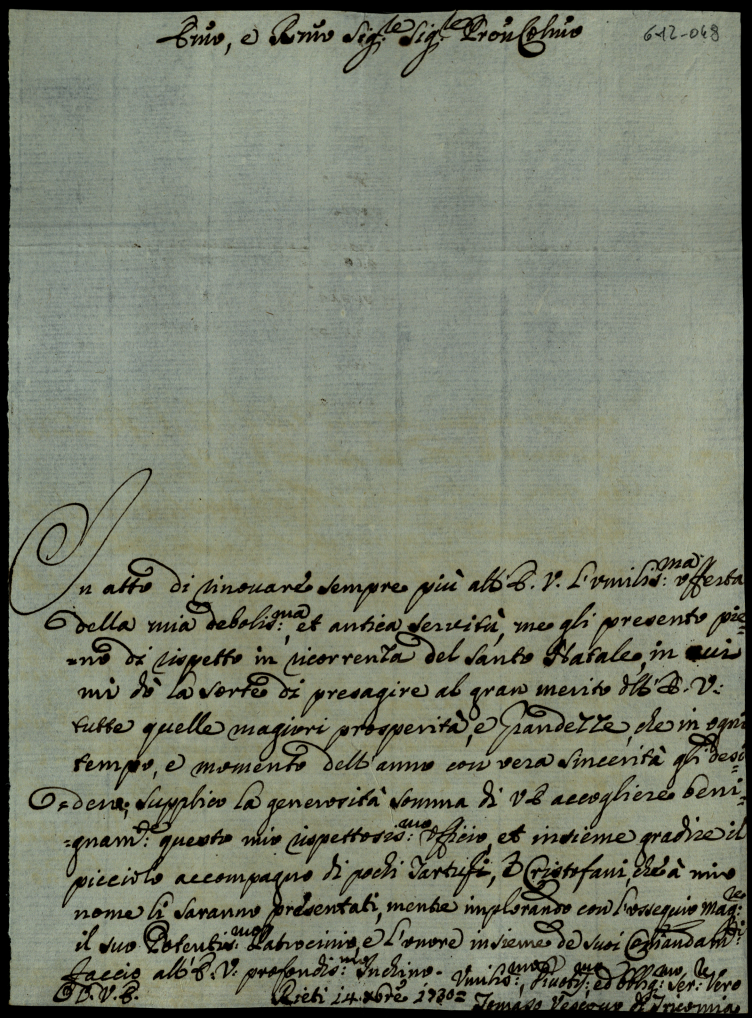 Emo, e Rmo Sig.re Sig.re Pron Colmo
612-048
In atto di rinovare sempre più all'E. V. l'umilis:ma offerta
della mia debolis:ma, et antica servitù, me gli presento pie=
=no di rispetto in ricorrenza del Santo Natale, in cui
mi dò la sorte di presagire al gran merito dll'E. V:
tutte quelle magiori prosperità, e Grandezze, che in ogni
tempo, e momento dell'anno con vera sincerità gli desi=
=dero; supplico la generosità somma di V E accogliere beni=
=gnam.te questo mio rispettosis:mo Officio, et insieme gradire il
picciolo accompagno di pochi Tartufi, e Cristofani, che à mio
nome li saranno presentati, mentre implorando con l'ossequio mag:re
il suo Potentis:mo Patrocinio, e l'onore insieme de suoi Comandam:ti
faccio all'E. V: profondis:mo Inchino.
D. V. E.
Rieti 14 Xbre 1730=
Umilis:mo, Divotis:mo ed Obblig:mo Ser:re Vero
Tomaso Vescovo di Tricomia